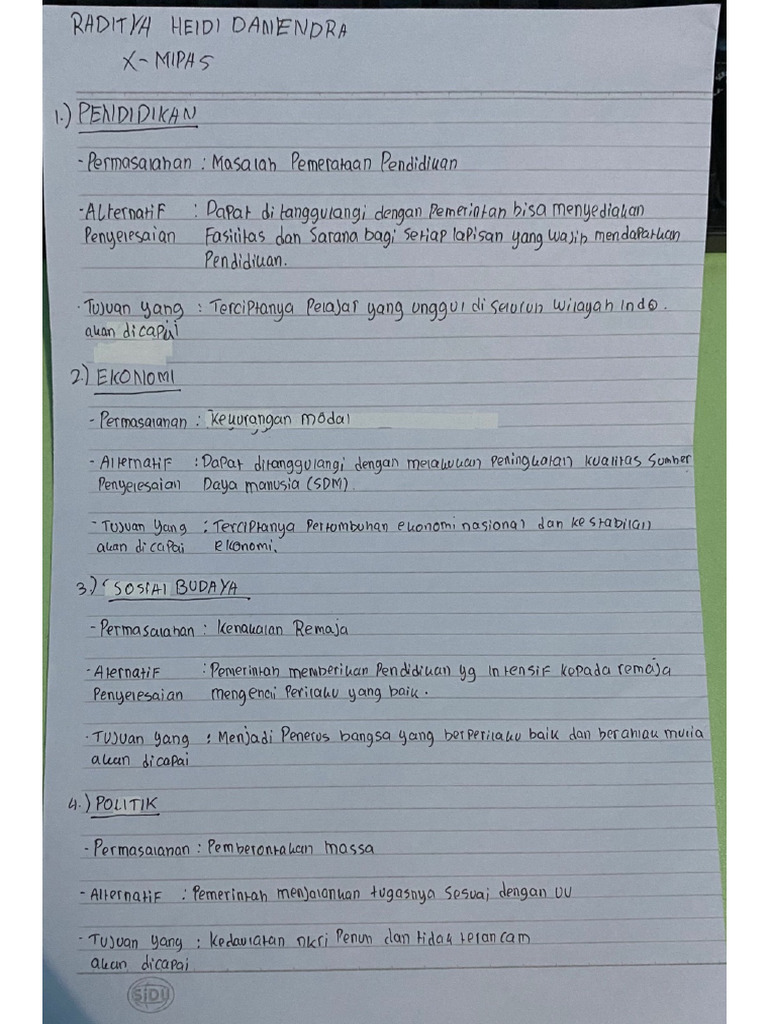 RADITYA HEIDI DANENDRA
X-MIPA5
1.) PENDIDIKAN
- Permasalahan : Masalah Pemerataan Pendidikan
- Alternatif : Dapat ditanggulangi dengan Pemerintah bisa menyediakan
Penyelesaian Fasilitas dan Sarana bagi setiap lapisan yang wajib mendapatkan
Pendidikan.
- Tujuan yang : Terciptanya Pelajar yang unggul di seluruh wilayah indo.
akan dicapai
2.) EKONOMI
- Permasalahan : Kekurangan modal
- Alternatif : Dapat ditanggulangi dengan melakukan Peningkatan kualitas Sumber
Penyelesaian Daya manusia (SDM).
- Tujuan yang : Terciptanya Pertombuhan ekonomi nasional dan kestabilan
akan dicapai ekonomi.
3.) SOSIAL BUDAYA
- Permasalahan : Kenakalan Remaja
- Aternatif : Pemerintah memberikan Pendidikan yg intensif kepada remaja
Penyelesaian mengenai Perilaku yang baik.
- Tujuan yang : Menjadi Penerus bangsa yang berperilaku baik dan berahlak mulia
akan dicapai
4.) POLITIK
- Permasalahan : Pemberontakan massa
- Alternatif : Pemerintah menjalankan tugasnya sesuai dengan UU
- Tujuan yang : Kedaulatan nkri Penuh dan tidak terancam
akan dicapai
SiDU